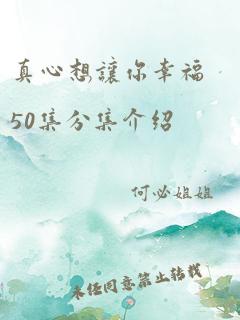 真心想讓你幸福
50集分集介绍
何必姐姐
未经同意禁止转载